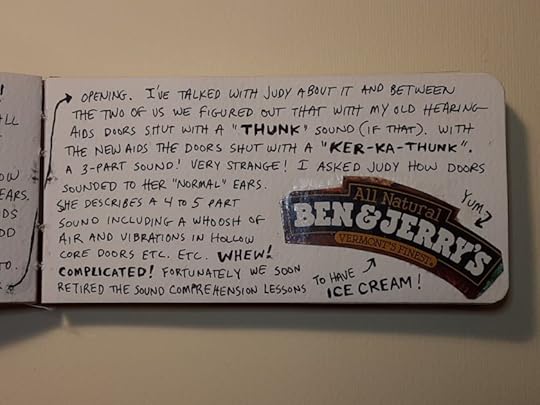 !
ALL
OPENING. I'VE TALKED WITH JUDY ABOUT IT AND BETWEEN
THE TWO OF US WE FIGURED OUT THAT WITH MY OLD HEARING
AIDS DOORS SHUT WITH A "THUNK" SOUND (IF THAT). WITH
THE NEW AIDS THE DOORS SHUT WITH A "KER-KA-THUNK".
A 3-PART SOUND! VERY STRANGE! I ASKED JUDY HOW DOORS
SOUNDED TO HER "NORMAL" EARS.
SHE DESCRIBES A 4 TO 5 PART
SOUND INCLUDING A WHOOSH OF
AIR AND VIBRATIONS IN HOLLOW
CORE DOORS ETC. ETC. WHEW!
COMPLICATED! FORTUNATELY WE SOON
RETIRED THE SOUND COMPREHENSION LESSONS
TO HAVE
ICE CREAM!
YUM?
All Natural
BEN & JERRY'S
VERMONT'S FINEST
EARS.
TO.